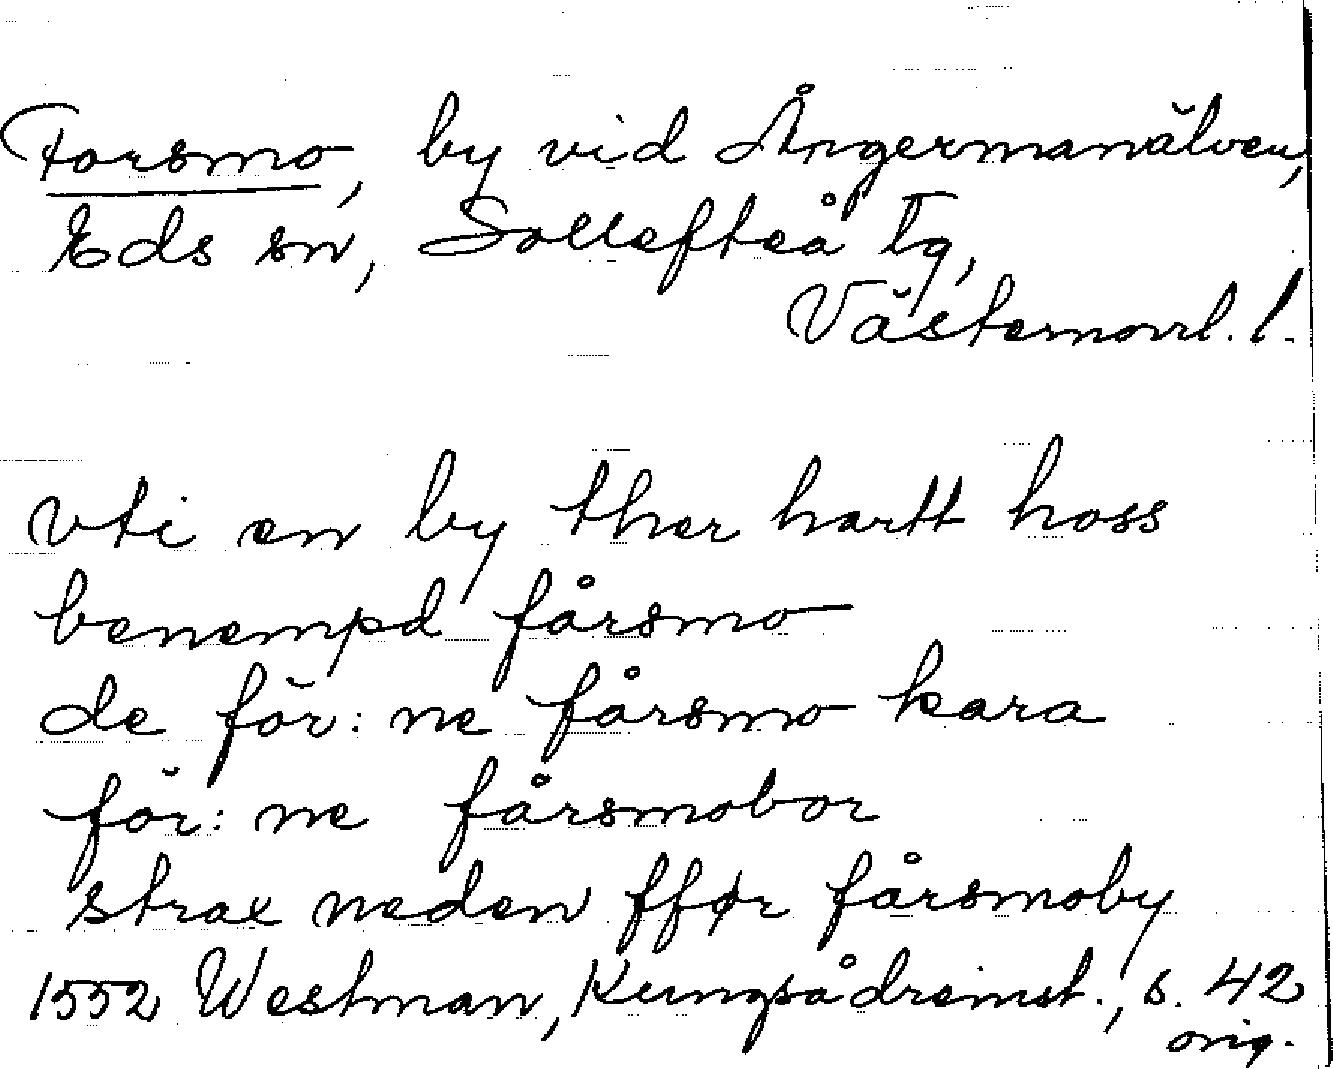 Forsmo, by vid Ångermanälven,
Eds sn, Sollefteå Tg,
Västernorrl. l.
vti en by ther hartt hoss
benempd fårsmo
de för:ne fårsmo kara
för:ne fårsmobor
strax neden fför fårsmoby
1552 Westman, Kungsådreinst., s. 42
orig.